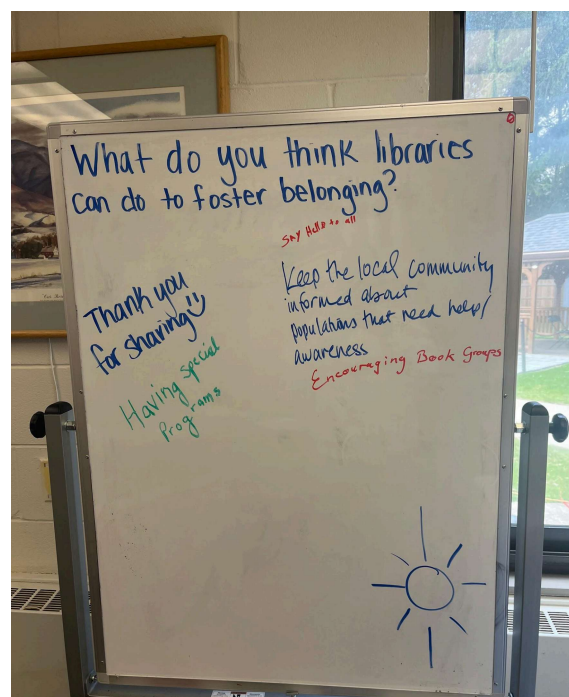 What do you think libraries
can do to foster belonging?
SAY Hello to all
Thank you
for sharing
Keep the local community
informed about
populations that need help/
awareness
Encouraging Book Groups
Having special
Programs